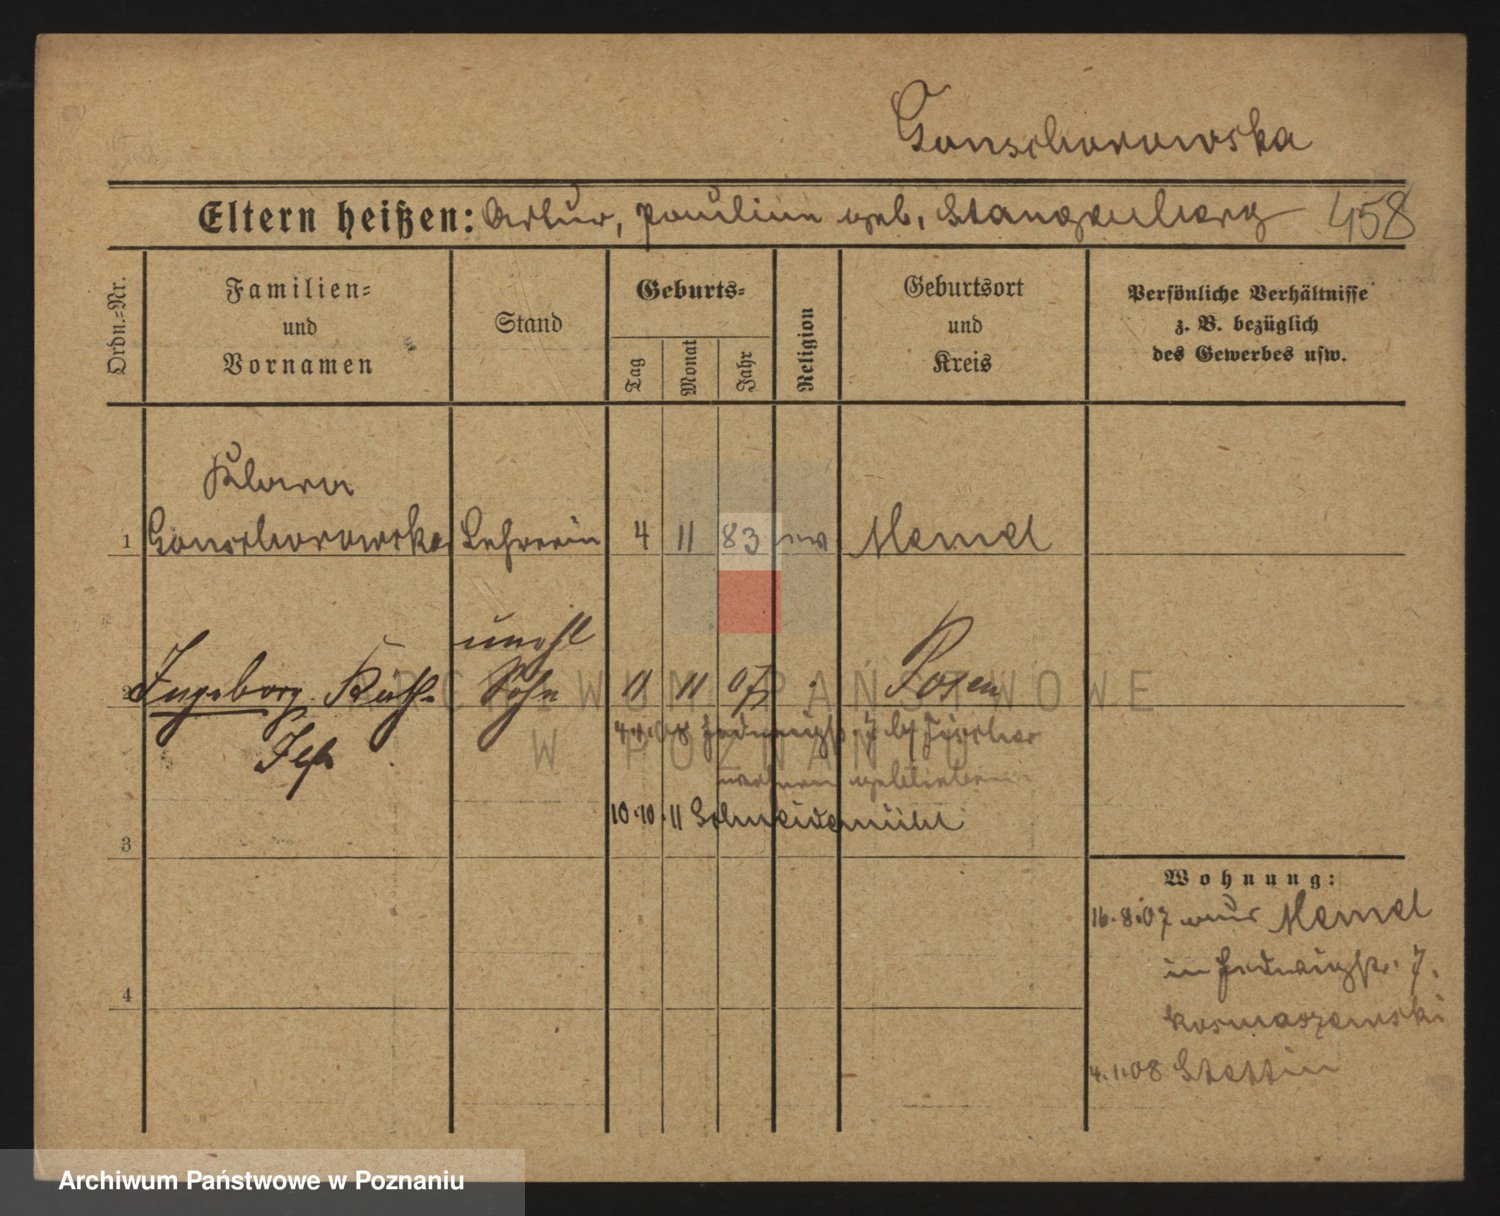 Gonschorowska
Eltern heißen: Artur, Pauline geb. Stangenberg 458
Ordn.-Nr.
Familien- und Vornamen
Stand
Geburts-
Tag
Monat
Jahr
Religion
Geburtsort und Kreis
Persönliche Verhältnisse z. B. bezüglich des Gewerbes usw.
Klara
1 Gonschorowska Lehrerin 4 11 83 ev Memel
unehl
2 Ingeborg Käthe Sohn 11 11 07 Posen
Ilse
4.1.08 Hedwigstr. 7 b/ Fischer
wohnen geblieben
10.10.11 Schneidemühl
3
4
Wohnung:
16.8.07 aus Memel
in Hedwigstr. 7.
Kosmaszewski
4.1.08 Stettin
ARCHIWUM PAŃSTWOWE
W POZNANIU
Archiwum Państwowe w Poznaniu